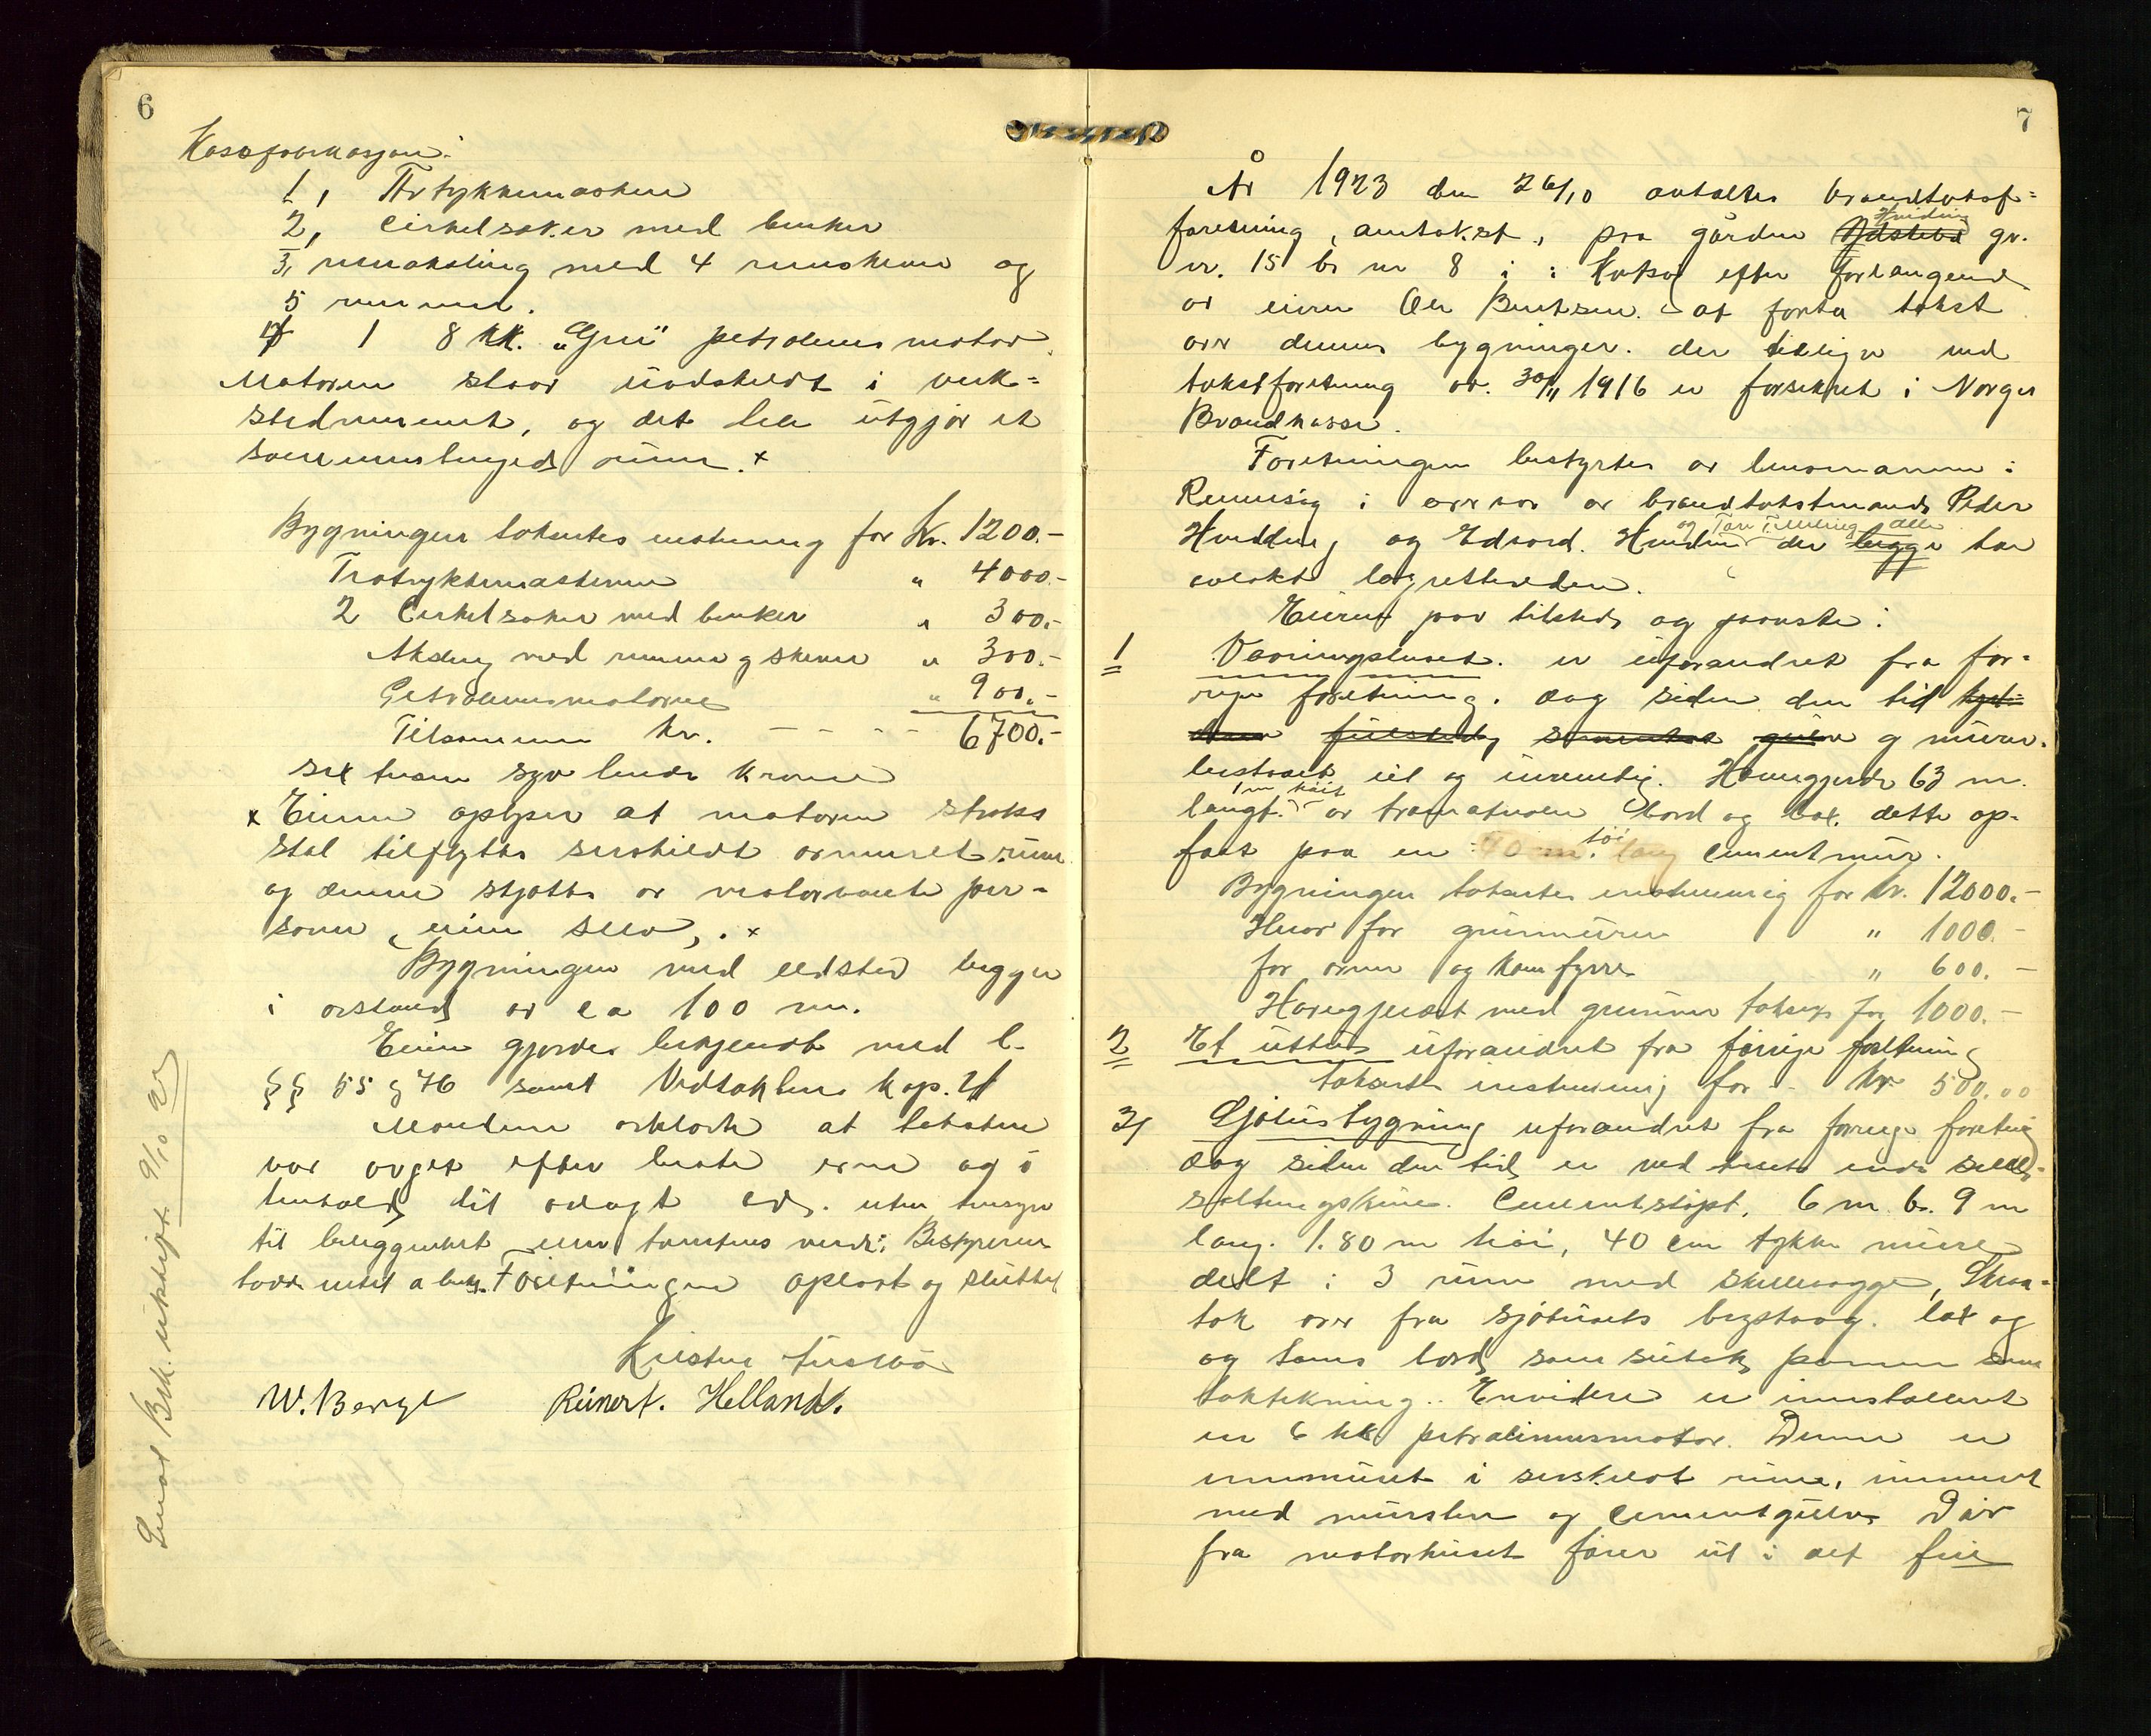 6
Kassefabrikasjon:
1, Tretykkemaskin
2, Cirkelsaker med benker
3, remaksling med 4 remskiver og
5 remmer.
4 1 8 HK. "Grei" petroleumsmotor.
Motoren staar uadskildt i verk=
stedrummet, og det hele utgjør et
sammenhengende rum. x
Bygningen takseres instning for Kr. 1200.-
Tretykkemaskinen " 4000.-
2 Cirkelsaker med benker " 300.-
Aksling med remme og skiver " 300.-
Petroleumsmotoren " 900.-
Tilsammen kr. - - - - 6700.-
sex tusen syv hundre kroner
x Eieren oplyser at motoren straks
skal tilflyttes serskildt avmuret rum
og denne støttes av motorvante per-
soner, eieren selv, . x
Bygningen med ildsted ligger
i avstand av ca 100 m.
Eieren gjordes bekjendt med l.
§§ 55 og 76 samt Vedtektene kap. 4
Mændene erklærte at taksten
var avget efter beste evne og i
henhold til avlagt ed. uten hensyn
til beliggenhet eller tomtens verdi. Bestyreren
hadde intet at bem. Foretningen oplæst og sluttet
W. Berge Reinert. Helland.
Sendt Brk. utskrift 9/10 23
7
År 1923 den 26/10 avholdtes brandtakstf=
foretning, omtakst, paa gården Hvidding gr.
nr. 15 br nr 8 i : efter forlangende
av eieren Ole Bentsen. at foreta takst
over dennes bygninger. der tidligere ved
takstforetning av. 30/11 1916 er forsikret i Norges
Brandkasse.
Foretningen bestyrtes av lensmannen i
Rennesøy i nærvær av brandtakstmænd Peder
Hvidding og Edvard. Hvidding og Tore alle der begge har
avlakt lagretteeden.
Eieren var tilstede og paaviste:
1 Vaaningshuset. er uforandret fra for-
rige foretning. dog siden den tid
gulv og murer.
ut og invendig. Havegjerde 63 m.
langt. 1 m høit av bord og dette op-
fast paa en 40 cm. høi lang cementmur.
Bygningen takseres instning for kr. 12000.-
Herav for grunmuren " 1000.-
for ovner og komfyrer " 600.-
Havegjerdet med grunmur takseres for 1000.-
2 Et uthus uforandret fra forrige foretning
takseres instning for - kr 500.00
3, Sjøhusbygning uforandret fra forrige foretning
dog siden den tid er ved husets ende silde-
saltningskum. Cementstøpt, 6 m b. 9 m
lang. 1.80 m høi, 40 cm tykke mure
delt i 3 rum med skillevægge, Skraa-
tak over fra sjøhusets bygstaag. lat og
og bord som sutak panner som
taktekning.. Envidere er innstalleret
en 6 hk petroliumsmotor. Denne er
innmuret i serskildt rum, innmuret
med mursten og cementgulv. Dør
fra motorhuset fører ut i det frie